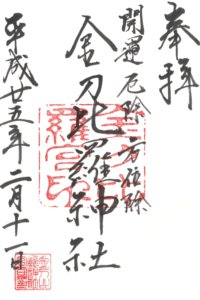 奉拝
開運厄除方位除
金刀比羅神社
平成廿五年二月十一日